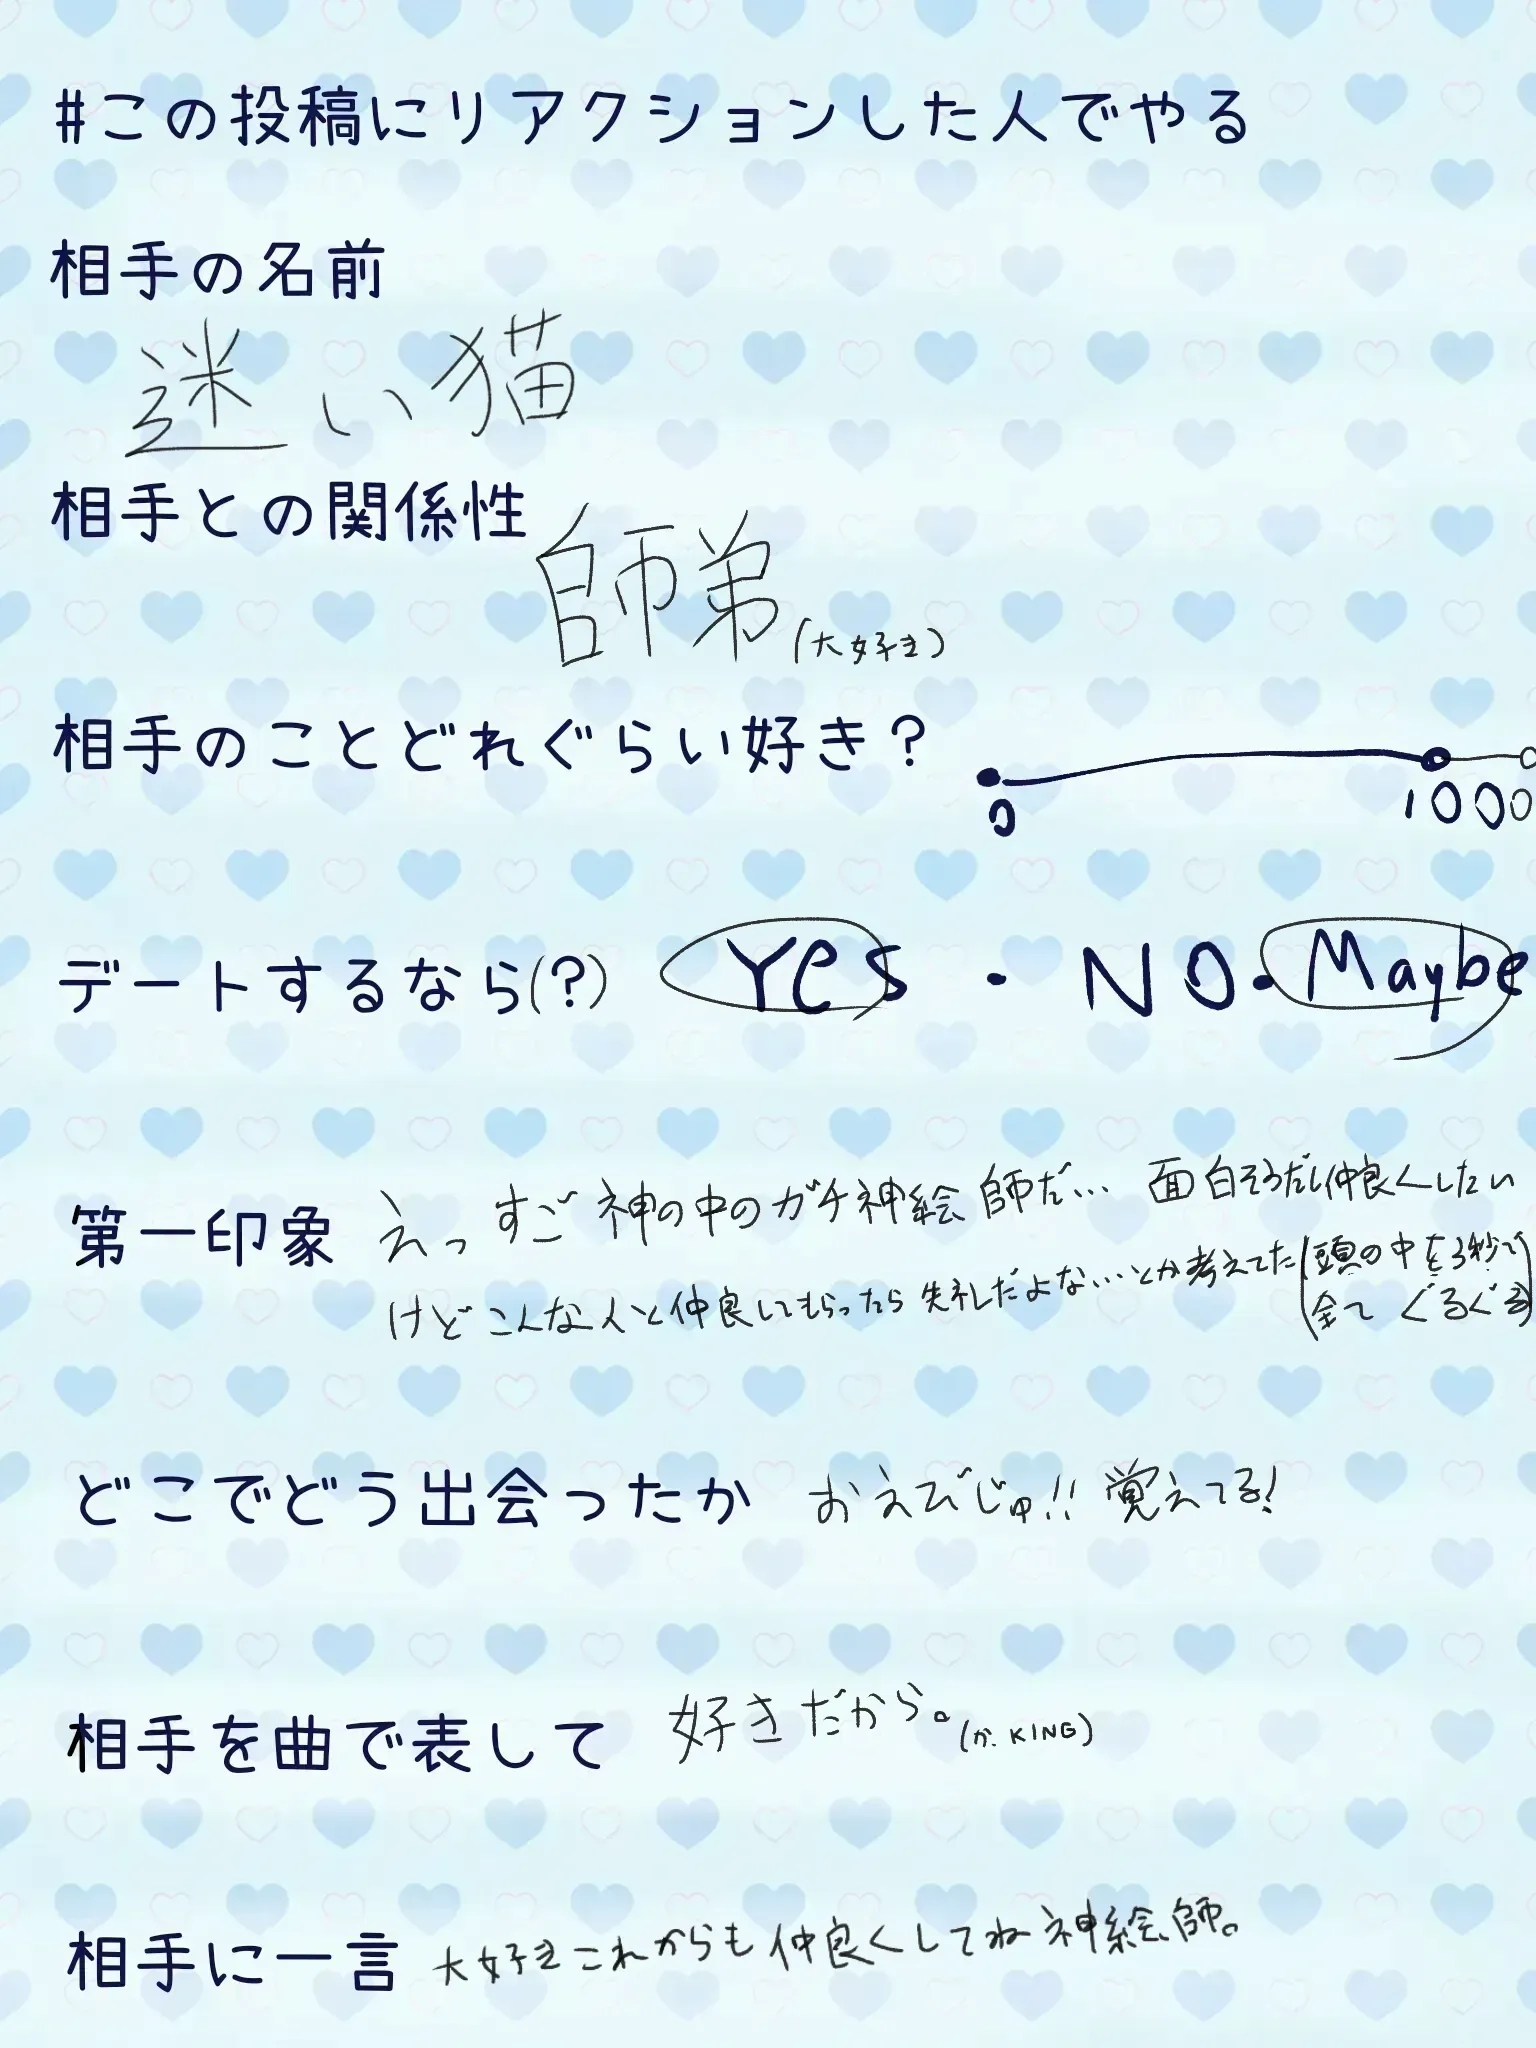 #この投稿にリアクションした人でやる
相手の名前
迷い猫
相手との関係性
師弟(大好き)
相手のことどれぐらい好き?
0 1000
デートするなら(?) Yes・NO・Maybe
第一印象 えっ すご 神の中のガチ神絵師だ… 面白そうだし仲良くしたい
けど こんな人と仲良してもらったら 失礼だよな…とか考えてた(頭の中を3秒で
全て ぐるぐる)
どこでどう出会ったか おえびじゅ!! 覚えてる!
相手を曲で表して 好きだから。(か.KING)
相手に一言 大好きこれからも仲良くしてね神絵師。